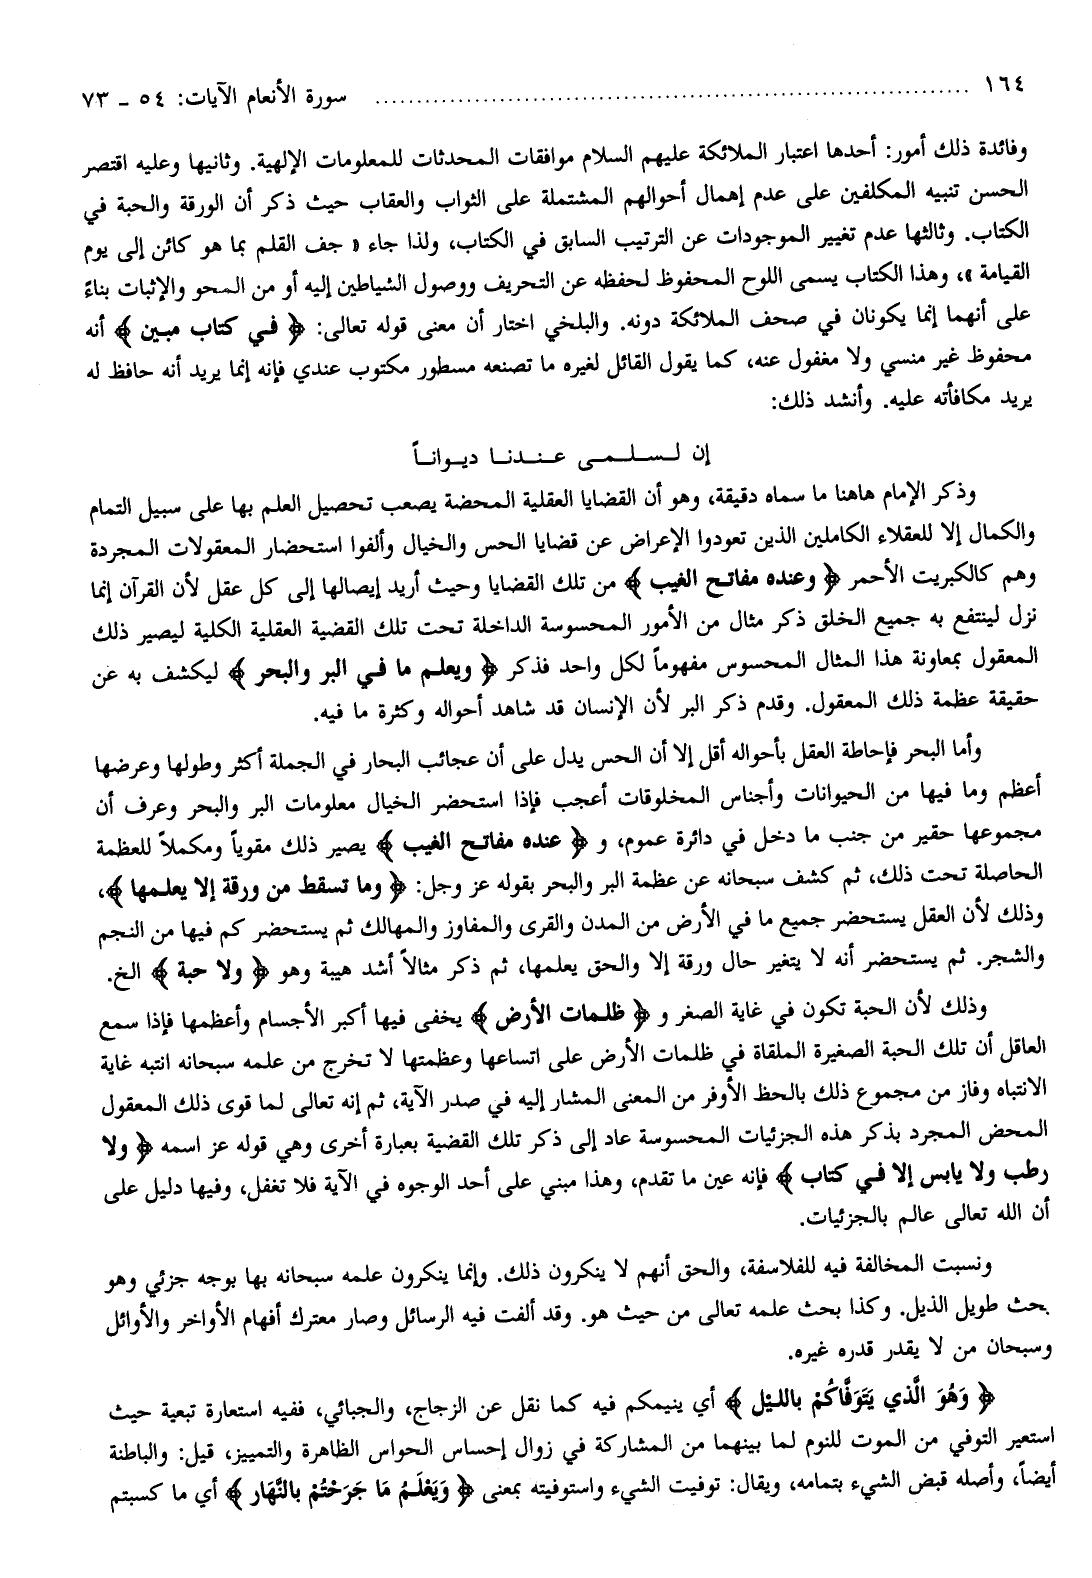 ١٦٤ ........................ سورة الأنعام الآيات: ٥٤ ـ ٧٣
وفائدة ذلك أمور: أحدها اعتبار الملائكة عليهم السلام موافقات المحدثات للمعلومات الإلهية. وثانيها وعليه اقتصر
الحسن تنبيه المكلفين على عدم إهمال أحوالهم المشتملة على الثواب والعقاب حيث ذكر أن الورقة والحبة في
الكتاب. وثالثها عدم تغيير الموجودات عن الترتيب السابق في الكتاب، ولذا جاء « جف القلم بما هو كائن إلى يوم
القيامة »، وهذا الكتاب يسمى اللوح المحفوظ لحفظه عن التحريف ووصول الشياطين إليه أو من المحو والإثبات بناءً
على أنهما إنما يكونان في صحف الملائكة دونه. والبلخي اختار أن معنى قوله تعالى: ﴿ في كتاب مبين ﴾ أنه
محفوظ غير منسي ولا مغفول عنه، كما يقول القائل لغيره ما تصنعه مسطور مكتوب عندي فإنه إنما يريد أنه حافظ له
يريد مكافأته عليه. وأنشد ذلك:
إن لـسـلـمـى عـنـدنـا ديـوانـاً
وذكر الإمام هاهنا ما سماه دقيقة، وهو أن القضايا العقلية المحضة يصعب تحصيل العلم بها على سبيل التمام
والكمال إلا للعقلاء الكاملين الذين تعودوا الإعراض عن قضايا الحس والخيال وألفوا استحضار المعقولات المجردة
وهم كالكبريت الأحمر ﴿ وعنده مفاتح الغيب ﴾ من تلك القضايا وحيث أريد إيصالها إلى كل عقل لأن القرآن إنما
نزل لينتفع به جميع الخلق ذكر مثال من الأمور المحسوسة الداخلة تحت تلك القضية العقلية الكلية ليصير ذلك
المعقول بمعاونة هذا المثال المحسوس مفهوماً لكل واحد فذكر ﴿ ويعلم ما في البر والبحر ﴾ ليكشف به عن
حقيقة عظمة ذلك المعقول. وقدم ذكر البر لأن الإنسان قد شاهد أحواله وكثرة ما فيه.
وأما البحر فإحاطة العقل بأحواله أقل إلا أن الحس يدل على أن عجائب البحار في الجملة أكثر وطولها وعرضها
أعظم وما فيها من الحيوانات وأجناس المخلوقات أعجب فإذا استحضر الخيال معلومات البر والبحر وعرف أن
مجموعها حقير من جنب ما دخل في دائرة عموم، و ﴿ عنده مفاتح الغيب ﴾ يصير ذلك مقوياً ومكملاً للعظمة
الحاصلة تحت ذلك، ثم كشف سبحانه عن عظمة البر والبحر بقوله عز وجل: ﴿ وما تسقط من ورقة إلا يعلمها ﴾،
وذلك لأن العقل يستحضر جميع ما في الأرض من المدن والقرى والمفاوز والمهالك ثم يستحضر كم فيها من النجم
والشجر. ثم يستحضر أنه لا يتغير حال ورقة إلا والحق يعلمها، ثم ذكر مثالاً أشد هيبة وهو ﴿ ولا حبة ﴾ الخ.
وذلك لأن الحبة تكون في غاية الصغر و ﴿ ظلمات الأرض ﴾ يخفى فيها أكبر الأجسام وأعظمها فإذا سمع
العاقل أن تلك الحبة الصغيرة الملقاة في ظلمات الأرض على اتساعها وعظمتها لا تخرج من علمه سبحانه انتبه غاية
الانتباه وفاز من مجموع ذلك بالحظ الأوفر من المعنى المشار إليه في صدر الآية، ثم إنه تعالى لما قوى ذلك المعقول
المحض المجرد بذكر هذه الجزئيات المحسوسة عاد إلى ذكر تلك القضية بعبارة أخرى وهي قوله عز اسمه ﴿ ولا
رطب ولا يابس إلا في كتاب ﴾ فإنه عين ما تقدم، وهذا مبني على أحد الوجوه في الآية فلا تغفل، وفيها دليل على
أن الله تعالى عالم بالجزئيات.
ونسبت المخالفة فيه للفلاسفة، والحق أنهم لا ينكرون ذلك. وإنما ينكرون علمه سبحانه بها بوجه جزئي وهو
بحث طويل الذيل. وكذا بحث علمه تعالى من حيث هو. وقد ألفت فيه الرسائل وصار معترك أفهام الأواخر والأوائل
وسبحان من لا يقدر قدره غيره.
﴿ وَهُوَ الَّذي يَتَوَفَّاكُمْ باللَيْل ﴾ أي ينيمكم فيه كما نقل عن الزجاج، والجبائي، ففيه استعارة تبعية حيث
استعير التوفي من الموت للنوم لما بينهما من المشاركة في زوال إحساس الحواس الظاهرة والتمييز، قيل: والباطنة
أيضاً، وأصله قبض الشيء بتمامه، ويقال: توفيت الشيء واستوفيته بمعنى ﴿ وَيَعْلَمُ مَا جَرَحْتُمْ بالنَّهَار ﴾ أي ما كسبتم